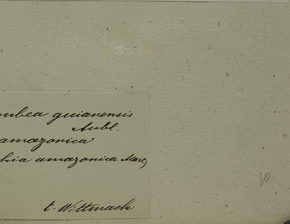 oubea guianensis
Aubl.
amazonica
bia amazonica Mart
t. Wittmack
10